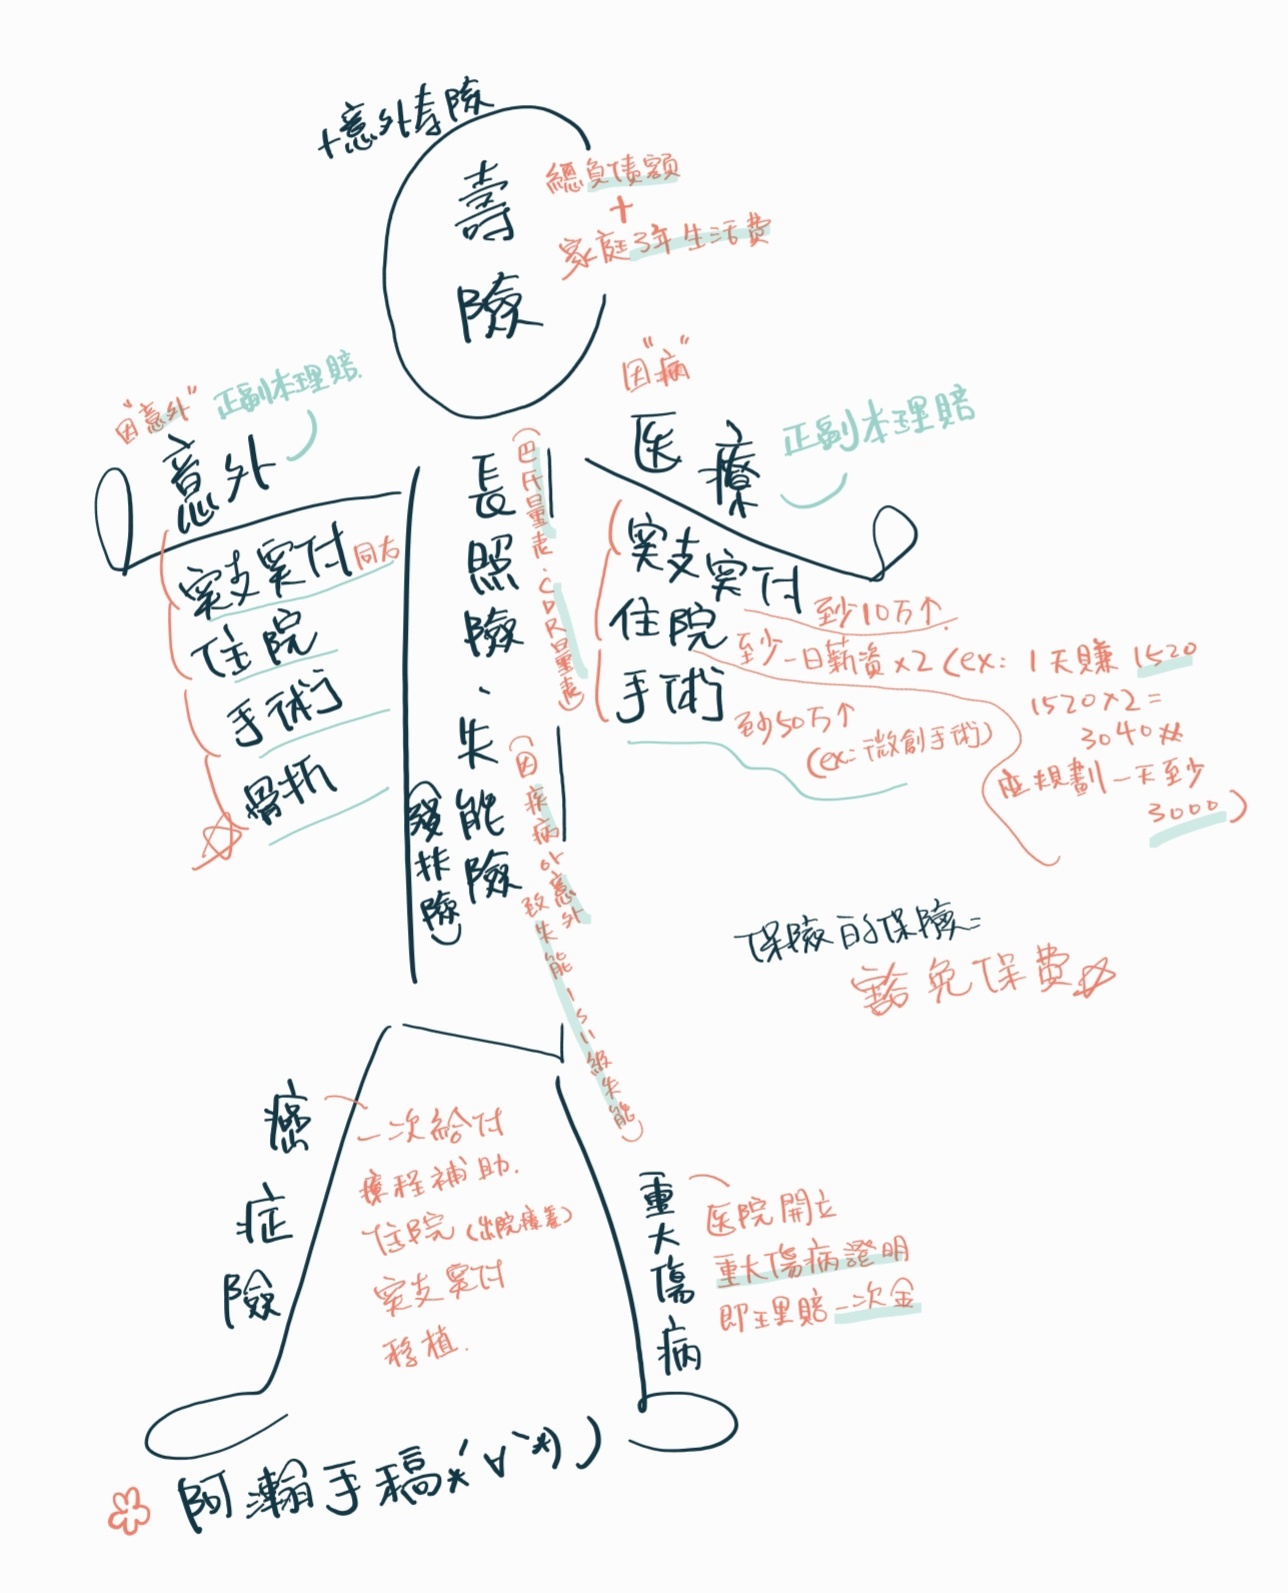 +意外壽險
壽險
總負債額
+
家庭3年生活費
因"意外"
正副本理賠.
意外
實支實付 同右
住院
手術
骨折
因"病"
医療
正副本理賠
實支實付
至少10万↑.
住院
至少一日薪資x2(ex: 1天賺1520
1520x2=
3040
應規劃一天至少
3000)
手術
至少50万↑
(ex:微創手術)
長照險、失能險
(巴氏量表.CDR量表)
(因疾病or意外致失能1~11級失能)
保險的保險=
豁免保費
癌症險
一次給付
療程補助.
住院(出院療養)
實支實付
移植.
重大傷病
医院開立
重大傷病證明
即理賠一次金
阿瀚手稿